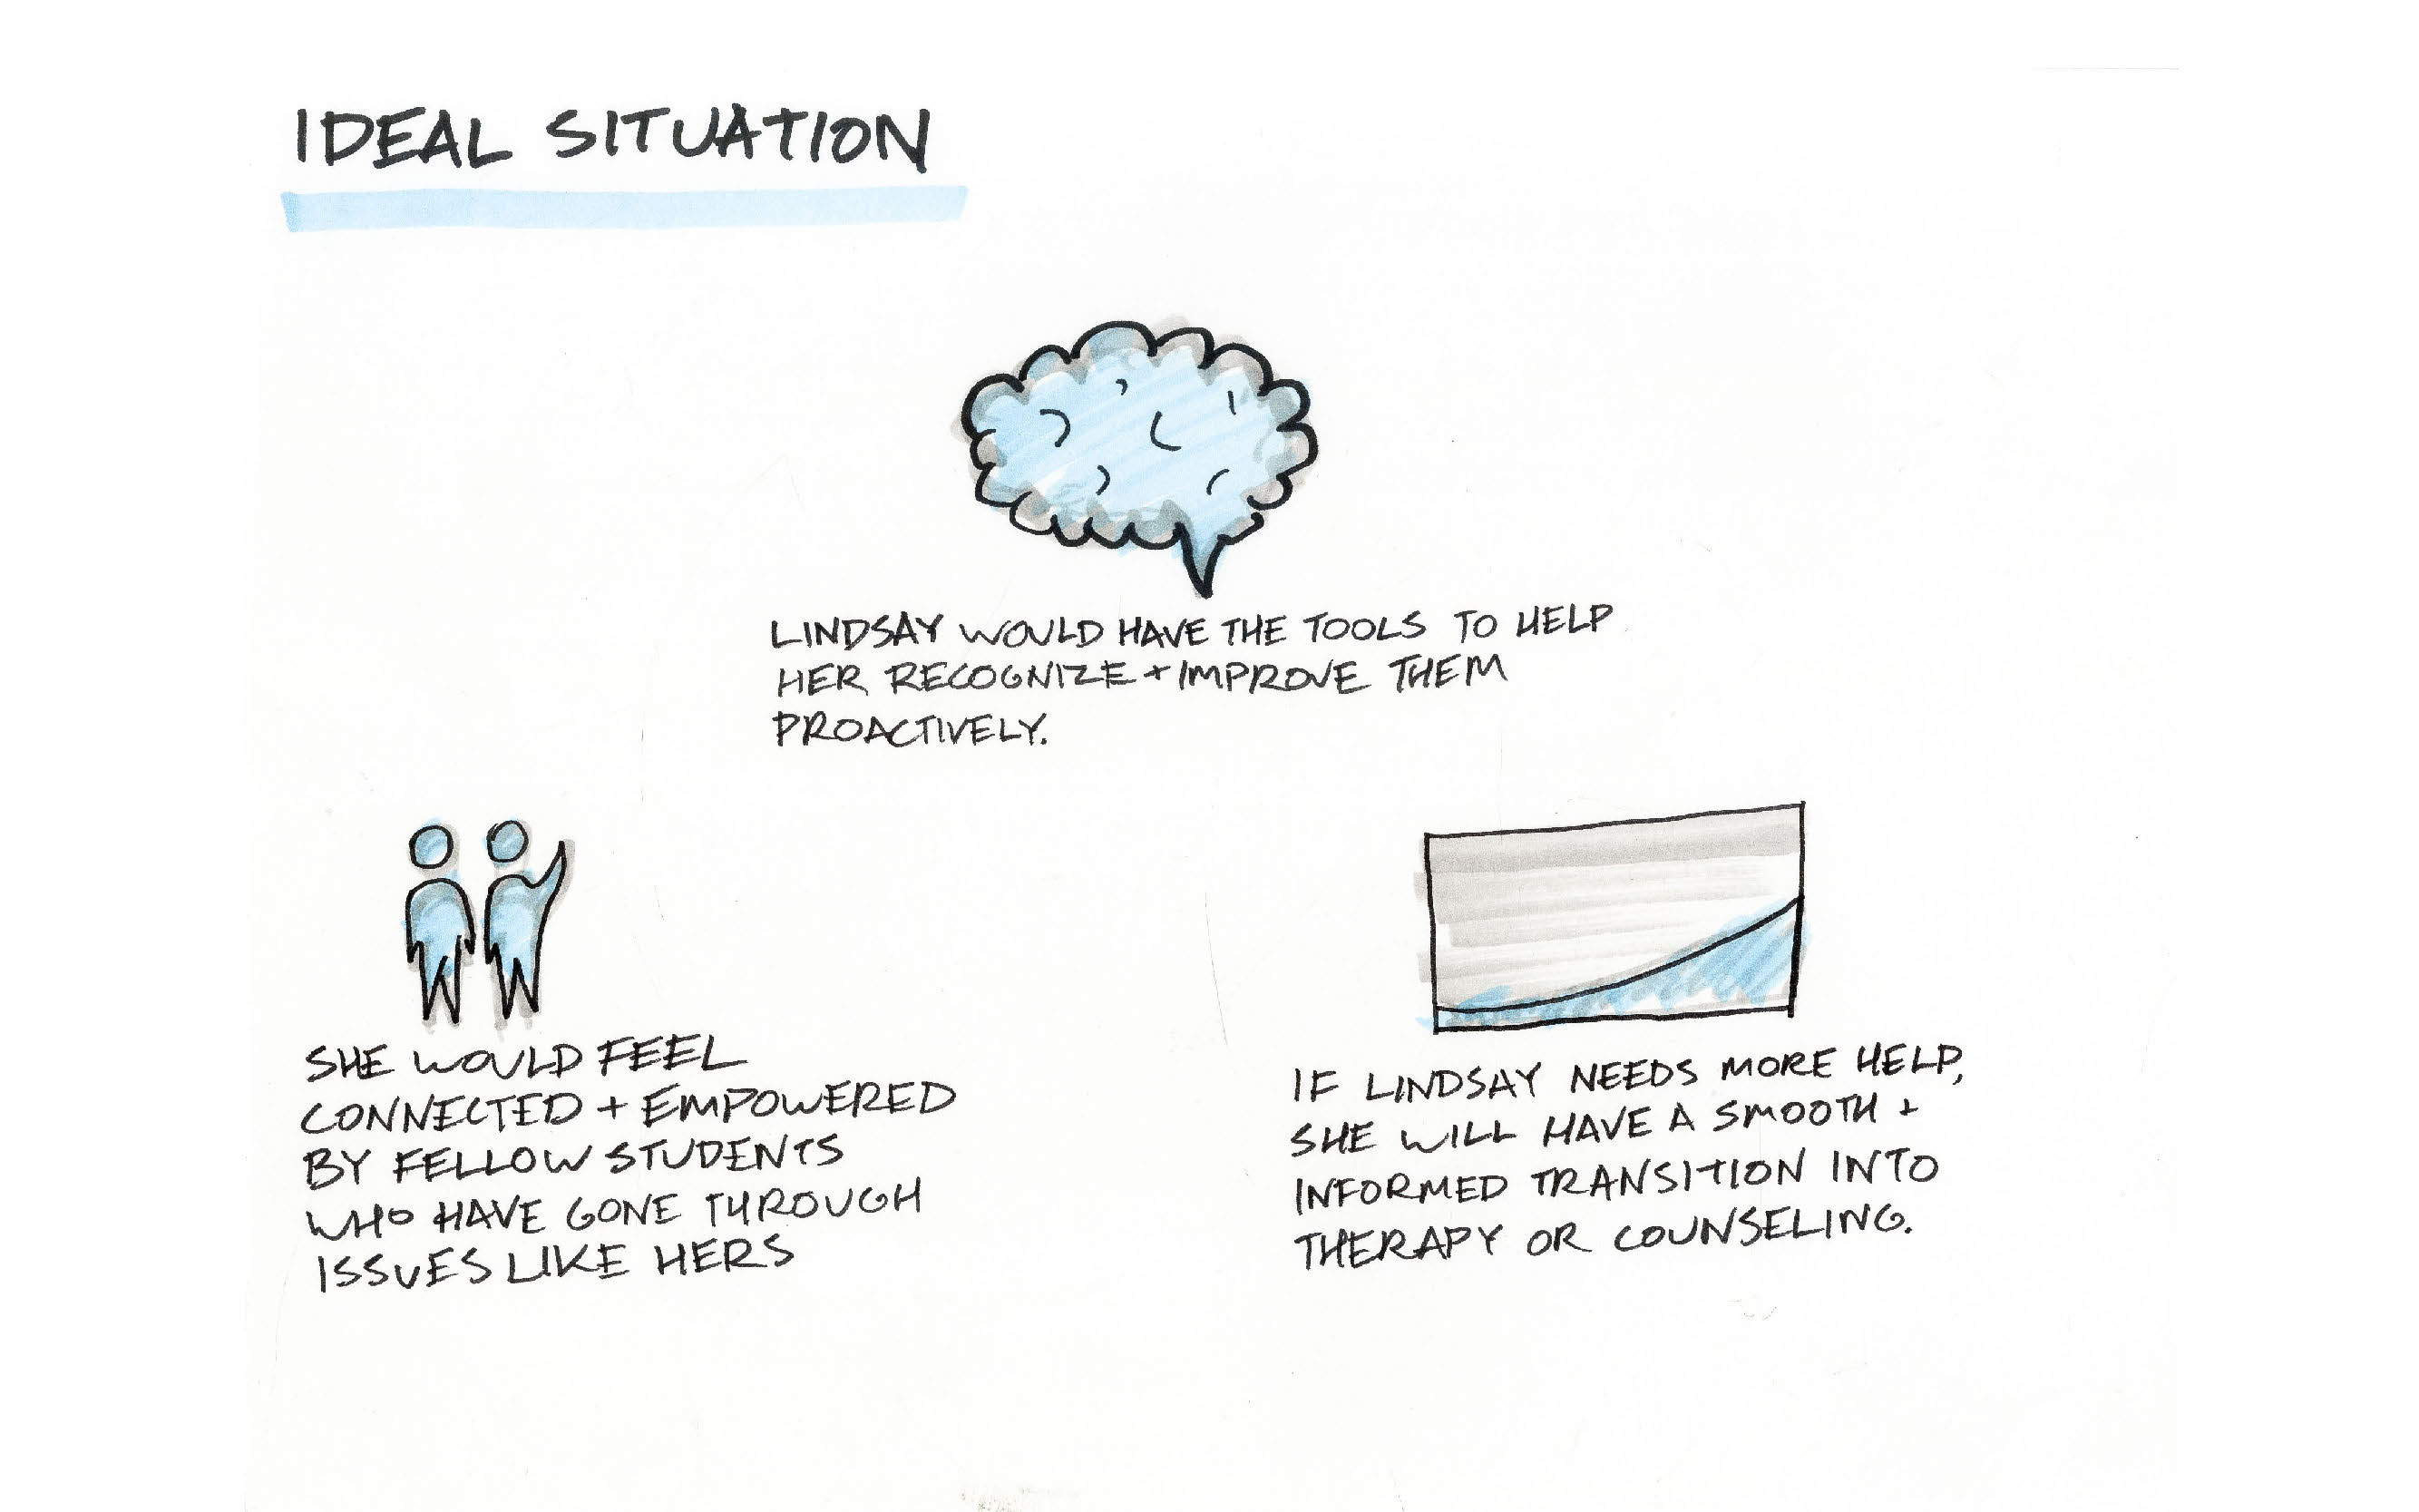 IDEAL SITUATION
LINDSAY WOULD HAVE THE TOOLS TO HELP
HER RECOGNIZE + IMPROVE THEM
PROACTIVELY.
SHE WOULD FEEL
CONNECTED + EMPOWERED
BY FELLOW STUDENTS
WHO HAVE GONE THROUGH
ISSUES LIKE HERS
IF LINDSAY NEEDS MORE HELP,
SHE WILL HAVE A SMOOTH +
INFORMED TRANSITION INTO
THERAPY OR COUNSELING.